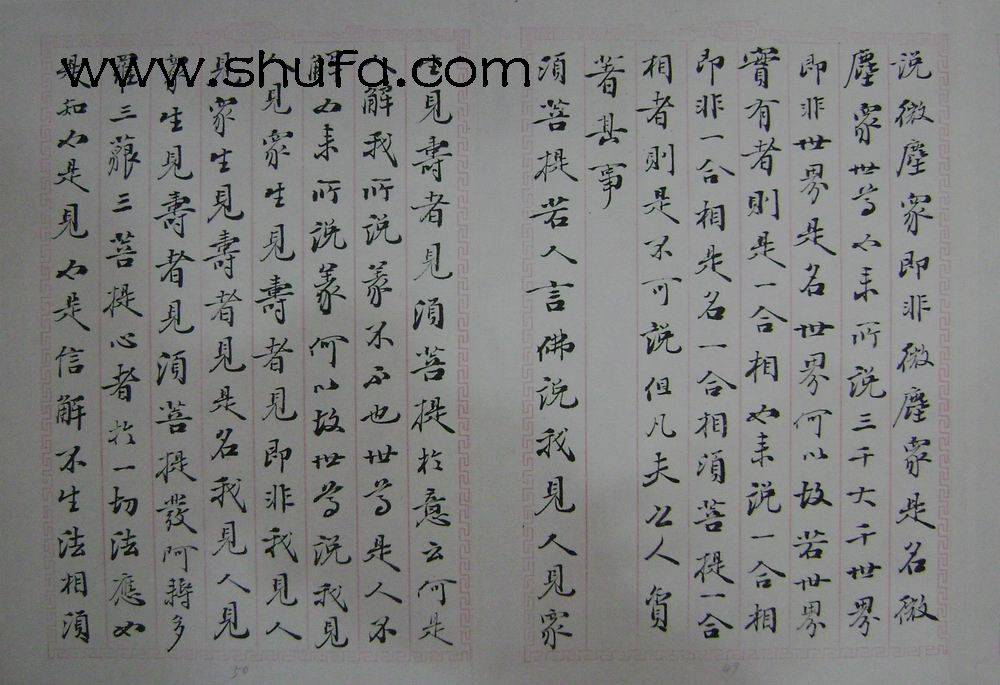 www.shufa.com
说微塵衆即非微塵衆是名微
塵衆世尊如来所说三千大千世界
即非世界是名世界何以故若世界
實有者則是一合相如来说一合相
即非一合相是名一合相须菩提一合
相者則是不可说但凡夫之人貪
著其事
须菩提若人言佛说我見人見衆
生見壽者見须菩提於意云何是
人解我所说義不不也世尊是人不
解如来所说義何以故世尊说我見
人見衆生見壽者見即非我見人
見衆生見壽者見是名我見人見
衆生見壽者見须菩提發阿耨多
羅三藐三菩提心者於一切法應如
是知如是見如是信解不生法相须
50
49